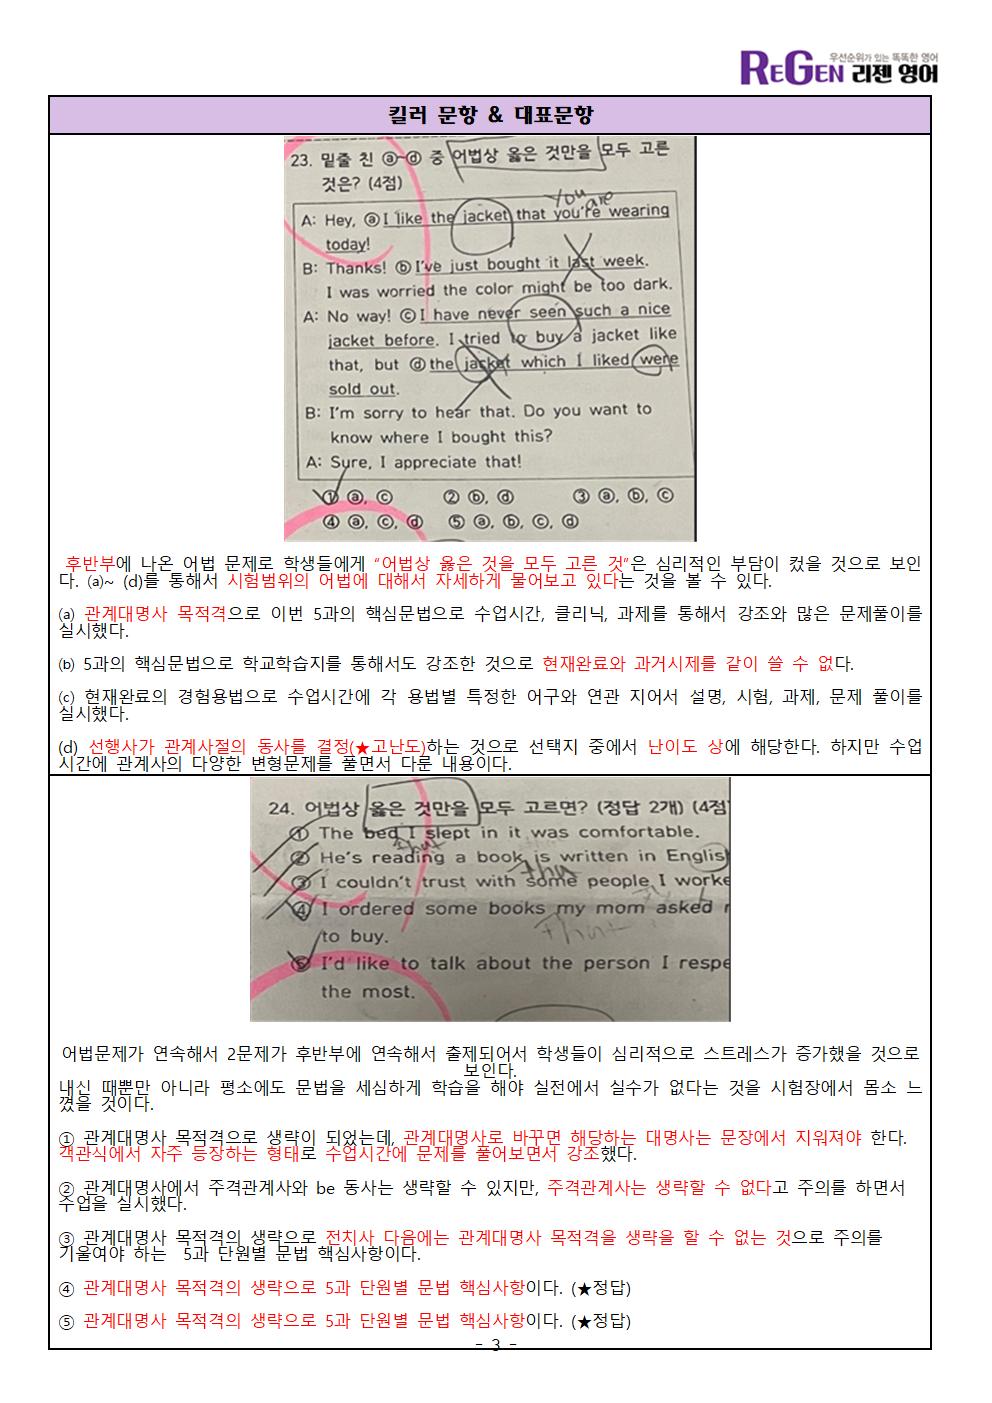 우선순위가 있는 똑똑한 영어
REGEN 리젠 영어
킬러 문항 & 대표문항
23. 밑줄 친 ⓐ~ⓓ 중 어법상 옳은 것만을 모두 고른
것은? (4점)
You are
A: Hey, ⓐ I like the jacket that you're wearing
today!
B: Thanks! ⓑ I've just bought it last week.
I was worried the color might be too dark.
A: No way! ⓒ I have never seen such a nice
jacket before. I tried to buy a jacket like
that, but ⓓ the jacket which I liked were
sold out.
B: I'm sorry to hear that. Do you want to
know where I bought this?
A: Sure, I appreciate that!
① ⓐ, ⓒ ② ⓑ, ⓓ ③ ⓐ, ⓑ, ⓒ
④ ⓐ, ⓒ, ⓓ ⑤ ⓐ, ⓑ, ⓒ, ⓓ
후반부에 나온 어법 문제로 학생들에게 “어법상 옳은 것을 모두 고른 것”은 심리적인 부담이 컸을 것으로 보인
다. (a)~ (d)를 통해서 시험범위의 어법에 대해서 자세하게 물어보고 있다는 것을 볼 수 있다.
(a) 관계대명사 목적격으로 이번 5과의 핵심문법으로 수업시간, 클리닉, 과제를 통해서 강조와 많은 문제풀이를
실시했다.
(b) 5과의 핵심문법으로 학교학습지를 통해서도 강조한 것으로 현재완료와 과거시제를 같이 쓸 수 없다.
(c) 현재완료의 경험용법으로 수업시간에 각 용법별 특정한 어구와 연관 지어서 설명, 시험, 과제, 문제 풀이를
실시했다.
(d) 선행사가 관계사절의 동사를 결정(★고난도)하는 것으로 선택지 중에서 난이도 상에 해당한다. 하지만 수업
시간에 관계사의 다양한 변형문제를 풀면서 다룬 내용이다.
24. 어법상 옳은 것만을 모두 고르면? (정답 2개) (4점
① The bed I slept in it was comfortable.
that
② He's reading a book is written in Englis
③ I couldn't trust with some people I worke
④ I ordered some books my mom asked
to buy.
that
⑤ I'd like to talk about the person I respe
the most.
어법문제가 연속해서 2문제가 후반부에 연속해서 출제되어서 학생들이 심리적으로 스트레스가 증가했을 것으로
보인다.
내신 때뿐만 아니라 평소에도 문법을 세심하게 학습을 해야 실전에서 실수가 없다는 것을 시험장에서 몸소 느
꼈을 것이다.
① 관계대명사 목적격으로 생략이 되었는데, 관계대명사로 바꾸면 해당하는 대명사는 문장에서 지워져야 한다.
객관식에서 자주 등장하는 형태로 수업시간에 문제를 풀어보면서 강조했다.
② 관계대명사에서 주격관계사와 be 동사는 생략할 수 있지만, 주격관계사는 생략할 수 없다고 주의를 하면서
수업을 실시했다.
③ 관계대명사 목적격의 생략으로 전치사 다음에는 관계대명사 목적격을 생략을 할 수 없는 것으로 주의를
기울여야 하는 5과 단원별 문법 핵심사항이다.
④ 관계대명사 목적격의 생략으로 5과 단원별 문법 핵심사항이다. (★정답)
⑤ 관계대명사 목적격의 생략으로 5과 단원별 문법 핵심사항이다. (★정답)
- 3 -